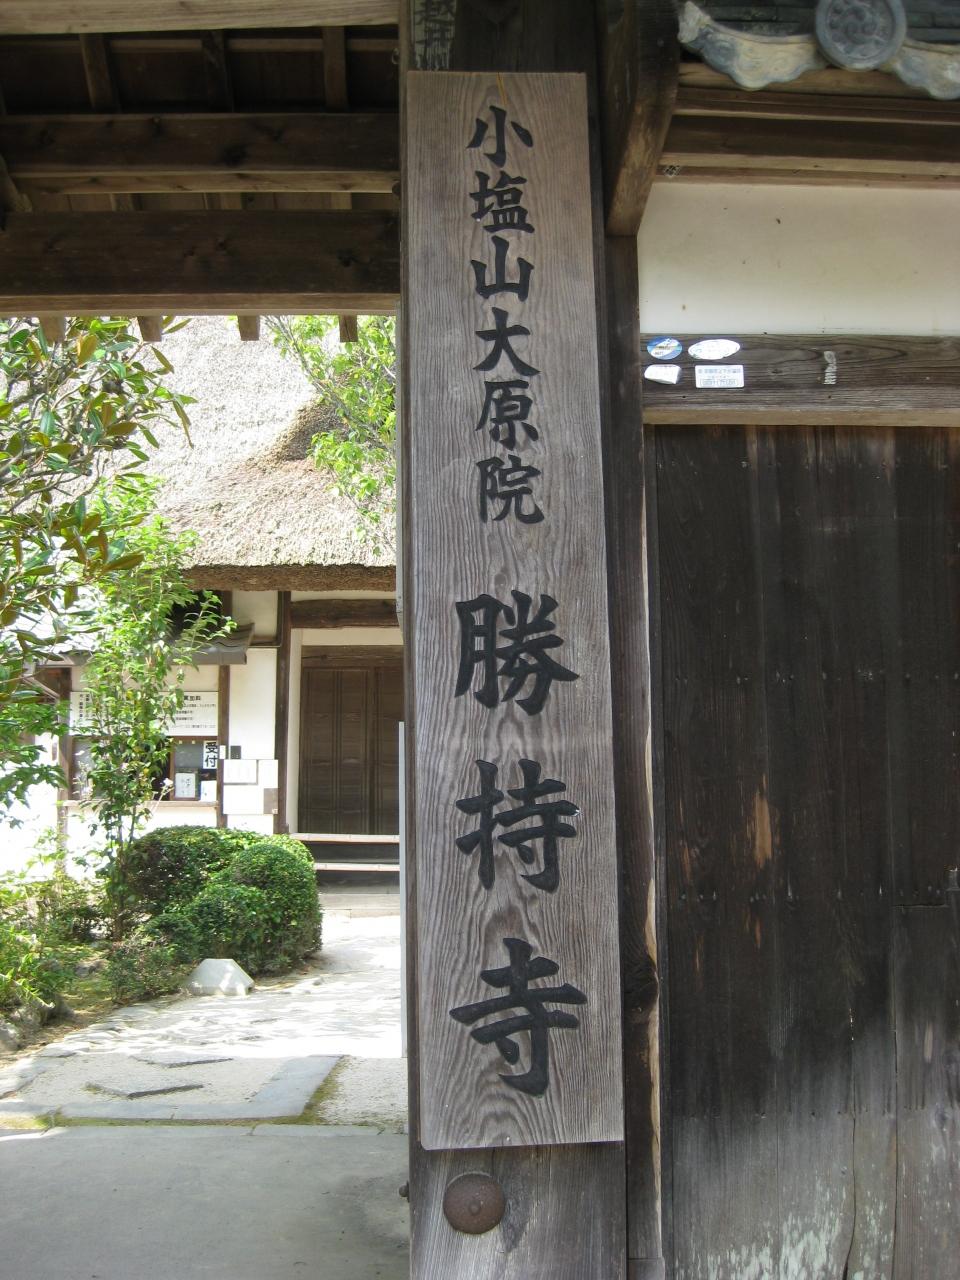 小塩山大原院
勝持寺
受付